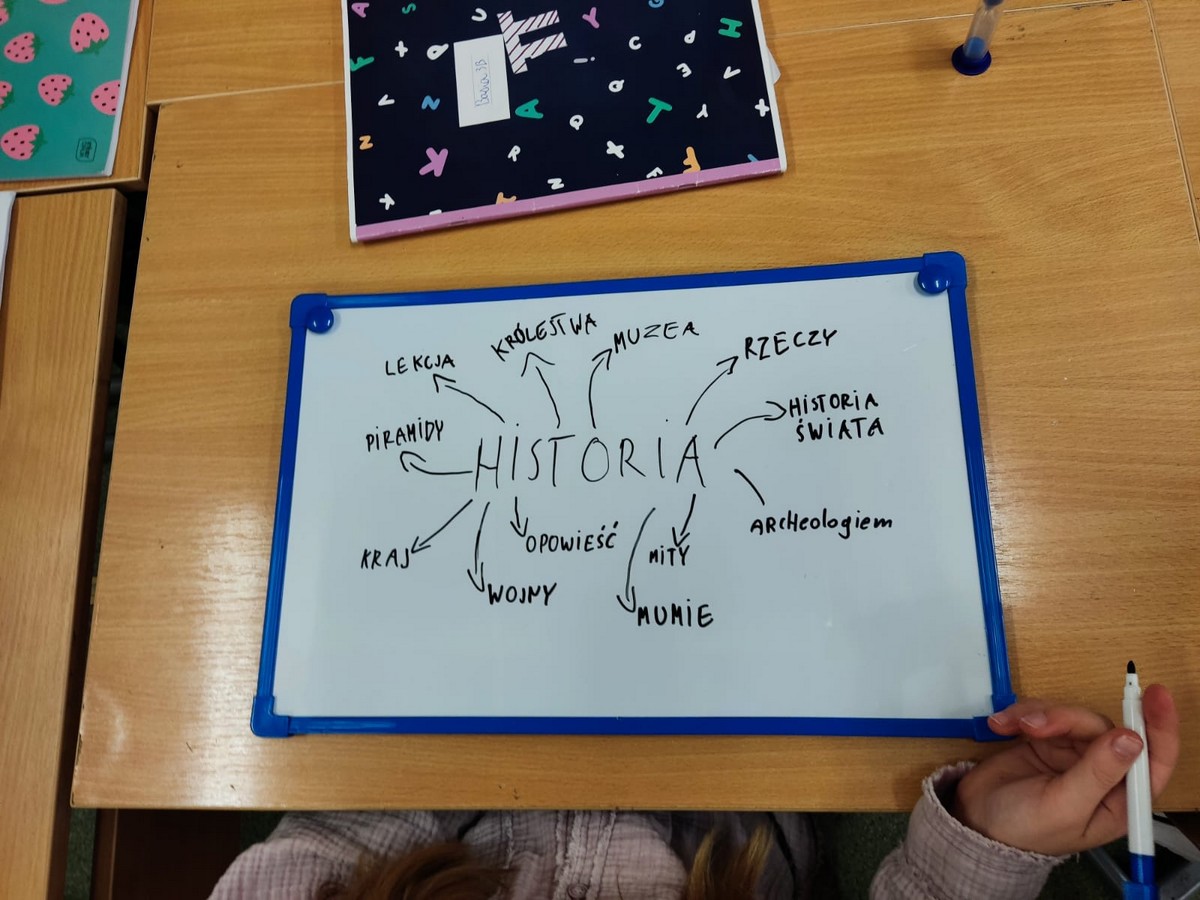 Basia 3B
KRÓLESTWA
MUZEA
LEKCJA
RZECZY
PiRAMiDY
HiSTORiA
ŚWiATA
HiSTORiA
ARCHeologiem
OPOWIEŚĆ
MiTY
KRAJ
WOJNY
MUMiE